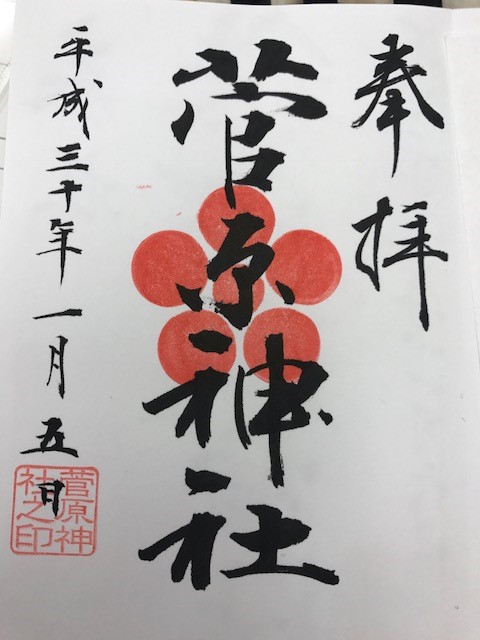 奉拝
菅原神社
平成三十年一月五日
菅原神
社之印